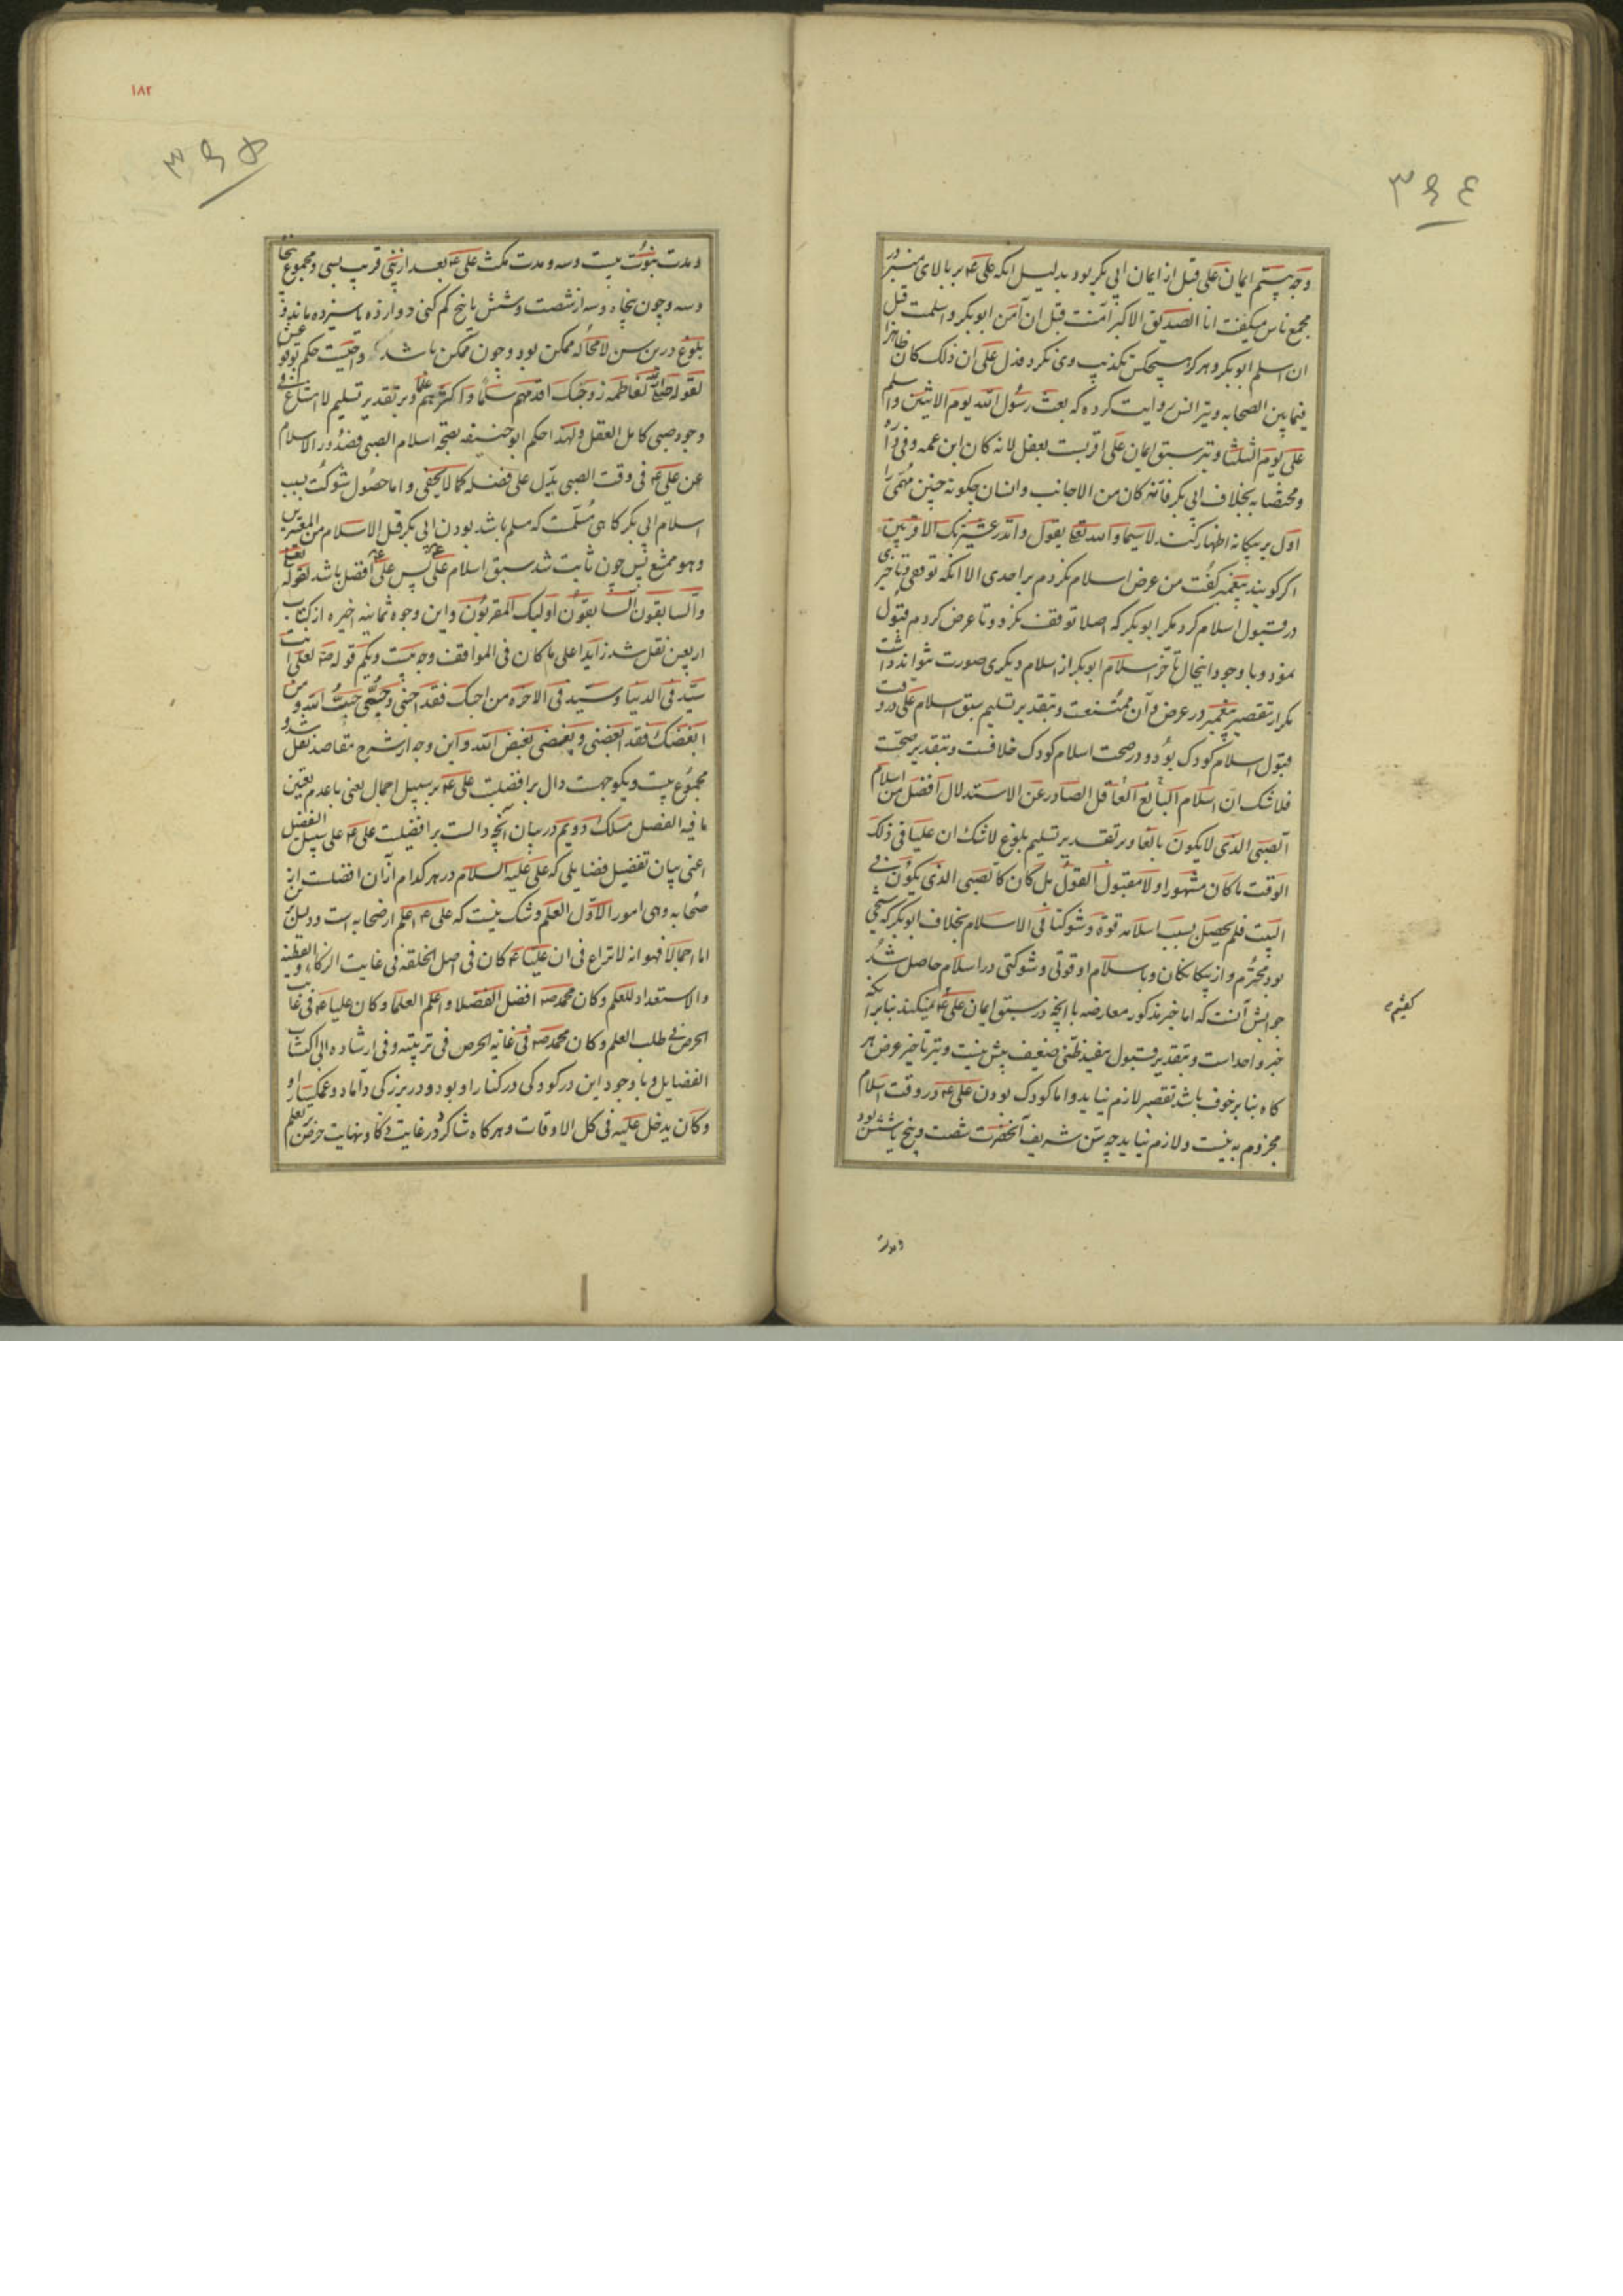 ۳۶۴
وجه بیستم ایمان علی قبل از ایمان ابی بکر بود بدلیل انکه علی ع م بر بالای منبر در
مجمع ناس میکفت انا الصدیق الاکبر آمنت قبل ان آمن ابوبکر و اسلمت قبل
ان اسلم ابوبکر و هرکز هیچکس تکذیب وی نکرد فدل علی ان ذلک کان ظاهرا
فیما بین الصحابه و نیز انس روایت کرده که بعث رسول الله یوم الاثنین و اسلم
علی یوم الثلثا و نیز سبق ایمان علی اقربست بعقل لانه کان ابن عمه و فی داره
و مختصا به بخلاف ابی بکر فانه کان من الاجانب و انسان چکونه چنین مهمی را
اول بر بیکانه اظهار کند لاسیما و الله تعالی یقول و انذر عشیرتک الاقربین
اکر کویند پیغمبر کفت من عرض اسلام نکردم بر احدی الا انکه توقفی و تاخیری
در قبول اسلام کرد مکر ابوبکر که اصلا توقف نکرد و تا عرض کردم قبول
نمود و با وجود اینحال تأخر اسلام ابوبکر از اسلام دیکری صورت نتواند داشت
مکر از تقصیر پیغمبر در عرض و آن ممتنعست و بتقدیر تسلیم سبق اسلام علی در وقت
قبول اسلام کودک بود و در صحت اسلام کودک خلافست و بتقدیر صحت
فلا شک ان اسلام البالغ العاقل الصادر عن الاستدلال افضل من اسلام
الصبی الذی لا یکون بالغا و بر تقدیر تسلیم بلوغ لا شک ان علیا فی ذلک
الوقت ما کان مشهورا و لا مقبول القول بل کان کالصبی الذی یکون فی
البیت فلم یحصل بسبب اسلامه قوة و شوکتا فی الاسلام بخلاف ابوبکر که شیخی
بود محترم و از بیکانکان و باسلام او قوتی و شوکتی در اسلام حاصل شد
جوابش آنست که اما خبر مذکور معارضه با آنچه در سبق ایمان علی ع م نمیکند بنابر آنکه
خبر واحد است و بتقدیر قبول مفید ظنی ضعیف بیش نیست و نیز تاخیر عرض هر
کاه بنابر خوف باشد تقصیر لازم نیاید و اما کودک بودن علی ع م در وقت اسلام
مجزوم به نیست و لازم نیاید چه سن شریف آنحضرت شصت و پنج یا شش بود
و مدت
۱۸۲
۳۶۵
و مدت نبوت بیست و سه و مدت مکث علی ع م بعد از نبی قریب بسی و مجموع پنجاه
و سه و چون پنجاه و سه از شصت و شش یا پنج کم کنی دوازده یا سیزده ماند و
بلوغ درین سن لا محاله ممکن بود و چون ممکن باشد واجبست حکم بوقوعش
لقوله صلی الله لفاطمه زوجتک اقدمهم سلما و اکثرهم علما و بر تقدیر تسلیم لا امتناع فی
وجود صبی کامل العقل و لهذا حکم ابو حنیفه بصحة اسلام الصبی فصدور الاسلام
عن علی ع م فی وقت الصبی یدل علی فضله کما لا یخفی و اما حصول شوکت بسبب
اسلام ابی بکر کاهی مسلمست که مسلم باشد بودن ابی بکر قبل الاسلام من المعتبرین
و هو ممتنع پس چون ثابت شد سبق اسلام علی ع م پس علی ع م افضل باشد لقوله تعالی
و السابقون السابقون اولیک المقربون و این وجوه ثمانیه اخیره از کتاب
اربعین نقل شد زایدا علی ما کان فی المواقف وجه بیست و یکم قوله ص م لعلی انت
سید فی الدنیا و سید فی الاخرة من احبک فقد احبنی و حبیبی حبیب الله و من
ابغضک فقد ابغضنی و بغیضی بغیض الله و این وجه از شرح مقاصد نقل شد و
مجموع بیست و یکوجهست دال بر افضلیت علی ع م بر سبیل اجمال یعنی با عدم تعیین
ما فیه الفضل مسلک دویم در بیان آنچه دالست بر افضلیت علی ع م علی سبیل التفصیل
اعنی بیان تفضیل فضایلی که علی علیه السلام در هر کدام از آن افضلست از
صحابه و هی امور الاول العلم و شک نیست که علی ع م اعلم از صحابه است و دلیلش
اما اجمالا فهو انه لا نزاع فی ان علیا ع م کان فی اصل الخلقه فی غایت الزکاء و الفطنه
و الاستعداد للعلم و کان محمد ص م افضل الفضلا و اعلم العلما و کان علیا ع م فی غایت
الحرص فی طلب العلم و کان محمد ص م فی غایة الحرص فی تربیته و فی ارشاده الی اکتساب
الفضایل و با وجود این در کودکی در کنار او بود و در بزرکی داماد و
و کان یدخل علیه فی کل الاوقات و هر کاه شاکرد در غایت ذکا و نهایت حرص بر تعلم